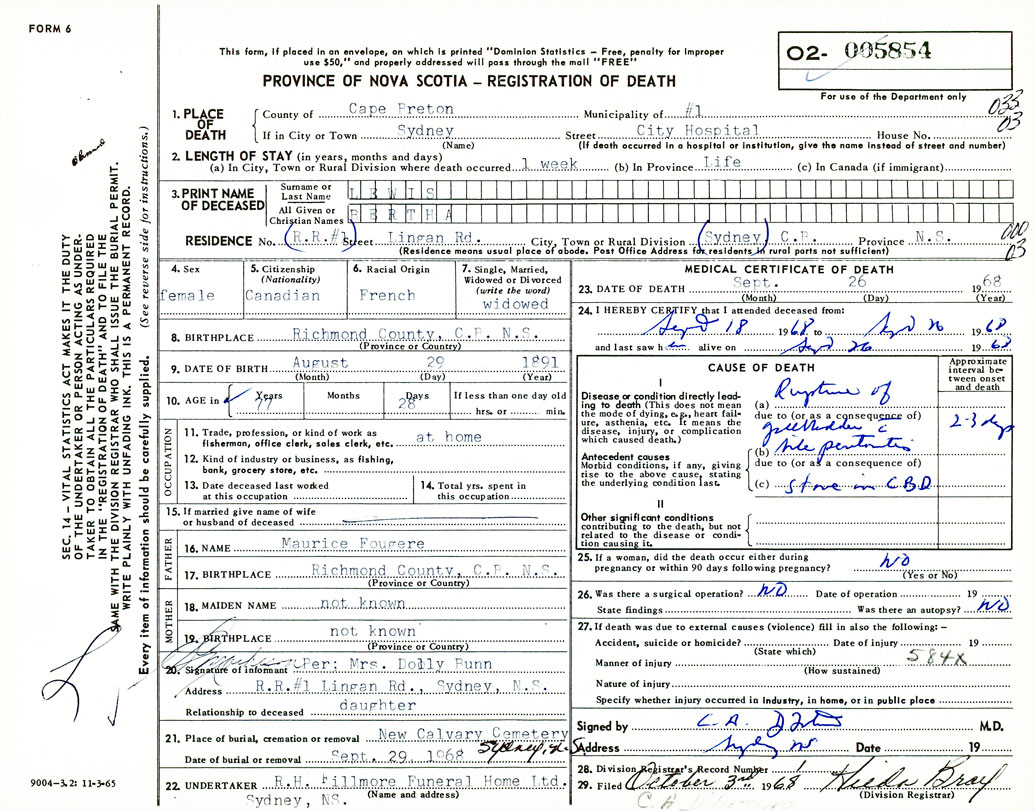 FORM 6
This form, if placed in an envelope, on which is printed "Dominion Statistics – Free, penalty for improper
use $50," and properly addressed will pass through the mail "FREE"
PROVINCE OF NOVA SCOTIA – REGISTRATION OF DEATH
O2- 005854
For use of the Department only
033
03
1. PLACE OF DEATH
County of Cape Breton Municipality of #1
If in City or Town Sydney Street City Hospital House No.
(Name) (If death occurred in a hospital or institution, give the name instead of street and number)
2. LENGTH OF STAY (in years, months and days)
(a) In City, Town or Rural Division where death occurred 1 week (b) In Province Life (c) In Canada (if immigrant)
3. PRINT NAME OF DECEASED
Surname or Last Name LEWIS
All Given or Christian Names BERTHA
RESIDENCE No. R.R.#1 Street Lingan Rd. City, Town or Rural Division Sydney C.B. Province N.S.
000
03
(Residence means usual place of abode. Post Office Address for residents in rural parts not sufficient)
4. Sex
female
5. Citizenship
(Nationality)
Canadian
6. Racial Origin
French
7. Single, Married,
Widowed or Divorced
(write the word)
widowed
8. BIRTHPLACE Richmond County, C.B. N.S.
(Province or Country)
9. DATE OF BIRTH August 29 1891
(Month) (Day) (Year)
10. AGE in Years Months Days If less than one day old
77 28 hrs. or min.
OCCUPATION
11. Trade, profession, or kind of work as
fisherman, office clerk, sales clerk, etc. at home
12. Kind of industry or business, as fishing,
bank, grocery store, etc.
13. Date deceased last worked
at this occupation
14. Total yrs. spent in
this occupation
15. If married give name of wife
or husband of deceased
FATHER
16. NAME Maurice Fougere
17. BIRTHPLACE Richmond County, C.B. N.S.
(Province or Country)
MOTHER
18. MAIDEN NAME not known
19. BIRTHPLACE not known
(Province or Country)
20. Signature of informant Per: Mrs. Dolly Bunn
Address R.R.#1 Lingan Rd., Sydney, N.S.
Relationship to deceased daughter
21. Place of burial, cremation or removal New Calvary Cemetery
Sydney, N.S.
Date of burial or removal Sept. 29, 1968
22. UNDERTAKER R.H. Fillmore Funeral Home Ltd.
(Name and address)
Sydney, NS.
MEDICAL CERTIFICATE OF DEATH
23. DATE OF DEATH Sept. 26 1968
(Month) (Day) (Year)
24. I HEREBY CERTIFY that I attended deceased from:
Sept 18 1968 to Sept 26 1968
and last saw her alive on Sept 26 1968
CAUSE OF DEATH
Approximate
interval be-
tween onset
and death
I
Disease or condition directly lead-
ing to death (This does not mean
the mode of dying, e.g., heart fail-
ure, asthenia, etc. It means the
disease, injury, or complication
which caused death.)
(a) Rupture of
due to (or as a consequence of)
gallbladder c
2-3 days
Antecedent causes
Morbid conditions, if any, giving
rise to the above cause, stating
the underlying condition last.
(b) bile peritonitis
due to (or as a consequence of)
(c) stone in CBD
II
Other significant conditions
contributing to the death, but not
related to the disease or condi-
tion causing it.
25. If a woman, did the death occur either during
pregnancy or within 90 days following pregnancy? NO
(Yes or No)
26. Was there a surgical operation? NO Date of operation 19
State findings Was there an autopsy? NO
27. If death was due to external causes (violence) fill in also the following: –
Accident, suicide or homicide? Date of injury 19
(State which)
584X
Manner of injury
(How sustained)
Nature of injury
Specify whether injury occurred in industry, in home, or in public place
Signed by C. A. M.D.
Address Sydney NS Date 19
28. Division Registrar's Record Number
29. Filed October 3rd 1968 Hilda Bray
(Division Registrar)
SEC. 14 – VITAL STATISTICS ACT MAKES IT THE DUTY
OF THE UNDERTAKER OR PERSON ACTING AS UNDER-
TAKER TO OBTAIN ALL THE PARTICULARS REQUIRED
IN THE "REGISTRATION OF DEATH" AND TO FILE THE
SAME WITH THE DIVISION REGISTRAR WHO SHALL ISSUE THE BURIAL PERMIT.
WRITE PLAINLY WITH UNFADING INK. THIS IS A PERMANENT RECORD.
Every item of information should be carefully supplied. (See reverse side for instructions.)
9004–3.2: 11-3-65